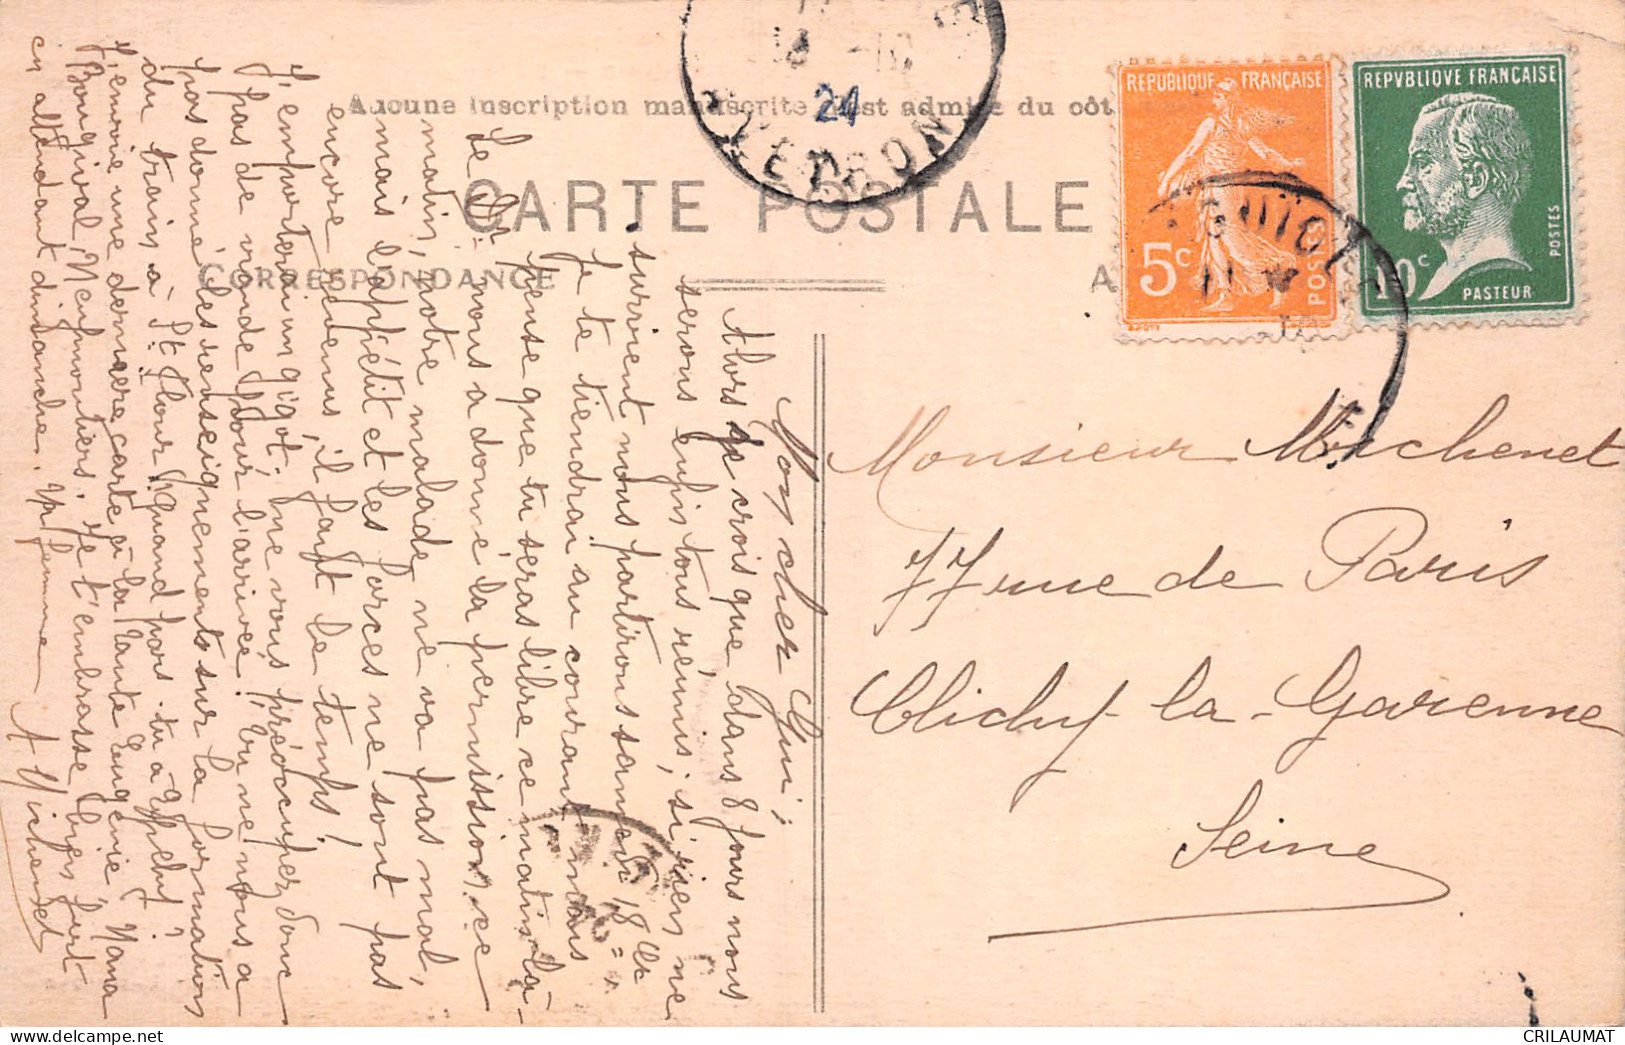 Aucune inscription manuscrite n'est admise du côt
CARTE POSTALE
CORRESPONDANCE
A
24
REPUBLIQUE FRANÇAISE
5c
POSTES
REPVBLIQVE FRANÇAISE
10c
POSTES
PASTEUR
Monsieur Michenet
77 rue de Paris
Clichy-la-Garenne
Seine
Mon cher Guy,
Alors je crois que dans 8 jours nous
serons enfin tous réunis, si rien ne
survient nous partirons samedi 18 le
Je te tiendrai au courant mais
pense que tu seras libre ce matin-là-
Le Dr. nous a donné la permission ce
matin, notre malade ne va pas mal,
mais l'appétit et les forces ne sont pas
encore revenus, il faut le temps!
J'emporterai un gigot. ne vous préoccupez donc
pas de viande pour l'arrivée! tu ne nous a
pas donné les renseignements sur la formation
du train à St Flour? Quand pars-tu à
J'envoie une dernière carte à la tante Eugénie, Nana
Bougival, Neufmoutiers. Je t'embrasse bien fort
en attendant dimanche.
A Michenet
CRILAUMAT